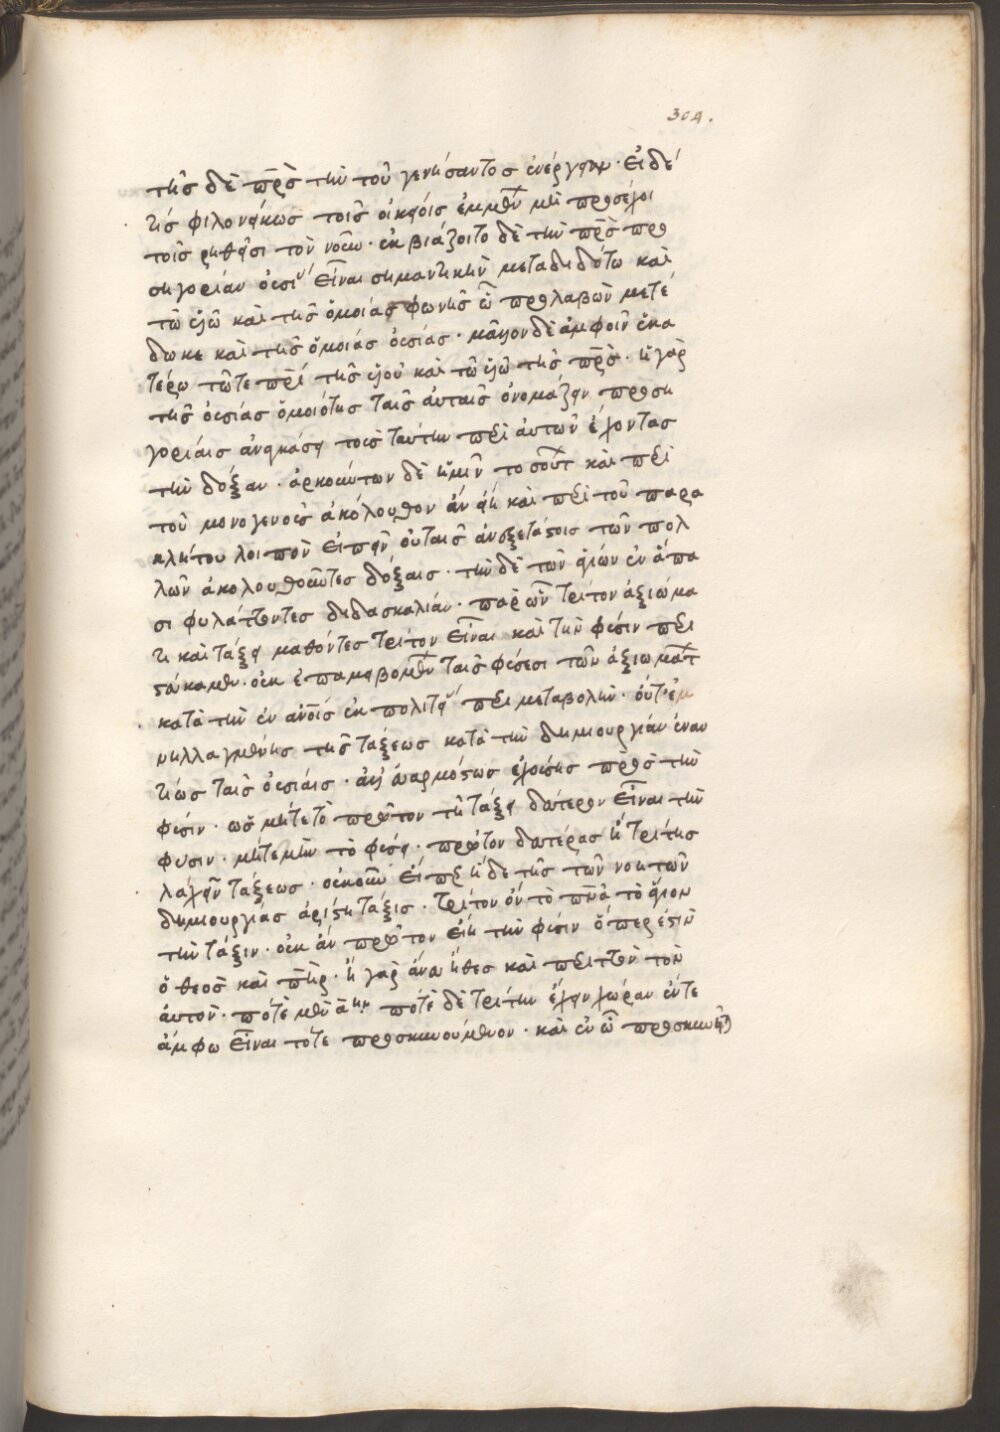 304.
της δὲ πρ̅ς̅ τὴν τοῦ γενήσαντος ἐνέργειαν · εἰ δέ
τίς φιλονείκως τοῖς οἰκείοις ἐμμένων μὴ προσέχοι
τοῖς ῥηθεῖσι τὸν νοῦν · ἐκβιάζοιτο δὲ τὴν πρ̅ς̅ προ
σηγορίαν οὐσίας εἶναι σημαντικὴν μεταδιδότω καὶ
τῶ υἱῶ καὶ τῆς ὁμοίας φωνῆς ὧ προλαβὼν μετέ
δωκε καὶ τῆς ὁμοίας οὐσίας · μᾶλλον δὲ ἀμφοῖν ἑκα
τέρω τῶ τε πρ̅ι̅ τῆς υἱοῦ καὶ τῶ υἱῶ τῆς πρ̅ς̅ · ἡ γὰρ
τῆς οὐσίας ὁμοιότης ταῖς αὐταῖς ὀνομάζειν προση
γορίαις ἀναγκάσει τοὺς ταύτην περὶ αὐτῶν ἔχοντας
τὴν δόξαν · ἀρκούντων δὲ ἡμῖν τοσούτων καὶ περὶ
τοῦ μονογενοῦς ἀκόλουθον ἂν εἴη καὶ περὶ τοῦ παρα
κλήτου λοιπὸν εἰπεῖν οὐ ταῖς ἀνεξετάστοις τῶν πολ
λῶν ἀκολουθοῦντες δόξαις · τὴν δὲ τῶν ἁγίων ἐν ἅπα
σι φυλάττοντες διδασκαλίαν · παρ' ὧν τρίτον ἀξιώμα
τι καὶ τάξει μαθόντες τρίτον εἶναι καὶ τὴν φύσιν πεπι
στεύκαμεν · οὐκ ἐπαμειβομένων ταῖς φύσεσι τῶν ἀξιωμάτων
κατὰ τὴν ἐν ἀν̅ο̅ις ἐκ πολιτείας περιμεταβολὴν · οὔτ' ἐν
νηλλαγμένης τῆς τάξεως κατὰ τὴν δημιουργίαν ἐναν
τίως ταῖς οὐσίαις · ἀλλ' εὐαρμόστως ἐχούσης πρὸς τὴν
φύσιν · ὡς μήτε τὸ πρῶτον τῆ τάξει δεύτερον εἶναι τὴν
φύσιν · μήτε μὴν τὸ φύσει · πρῶτον δευτέρας ἢ τρίτης
λαχεῖν τάξεως · οὐκοῦν εἴπερ ἥδε τῆς τῶν νοητῶν
δημιουργίας ἀρίστη τάξις · τρίτον ὂν τὸ πν̅α̅ τὸ ἅγιον
τὴν τάξιν · οὐκ ἂν πρῶτον εἴη τὴν φύσιν ὅπερ ἐστὶν
ὁ θεὸς καὶ πη̅ρ̅ · ἢ γὰρ ἂν
αὐτὸν · ποτὲ μὲν α̅ην ποτὲ δὲ τρίτην ἔχειν χώραν ἕν τε
ἄμφω εἶναι τό τε προσκυνούμενον · καὶ ἐν ὧ προσκυνεῖται